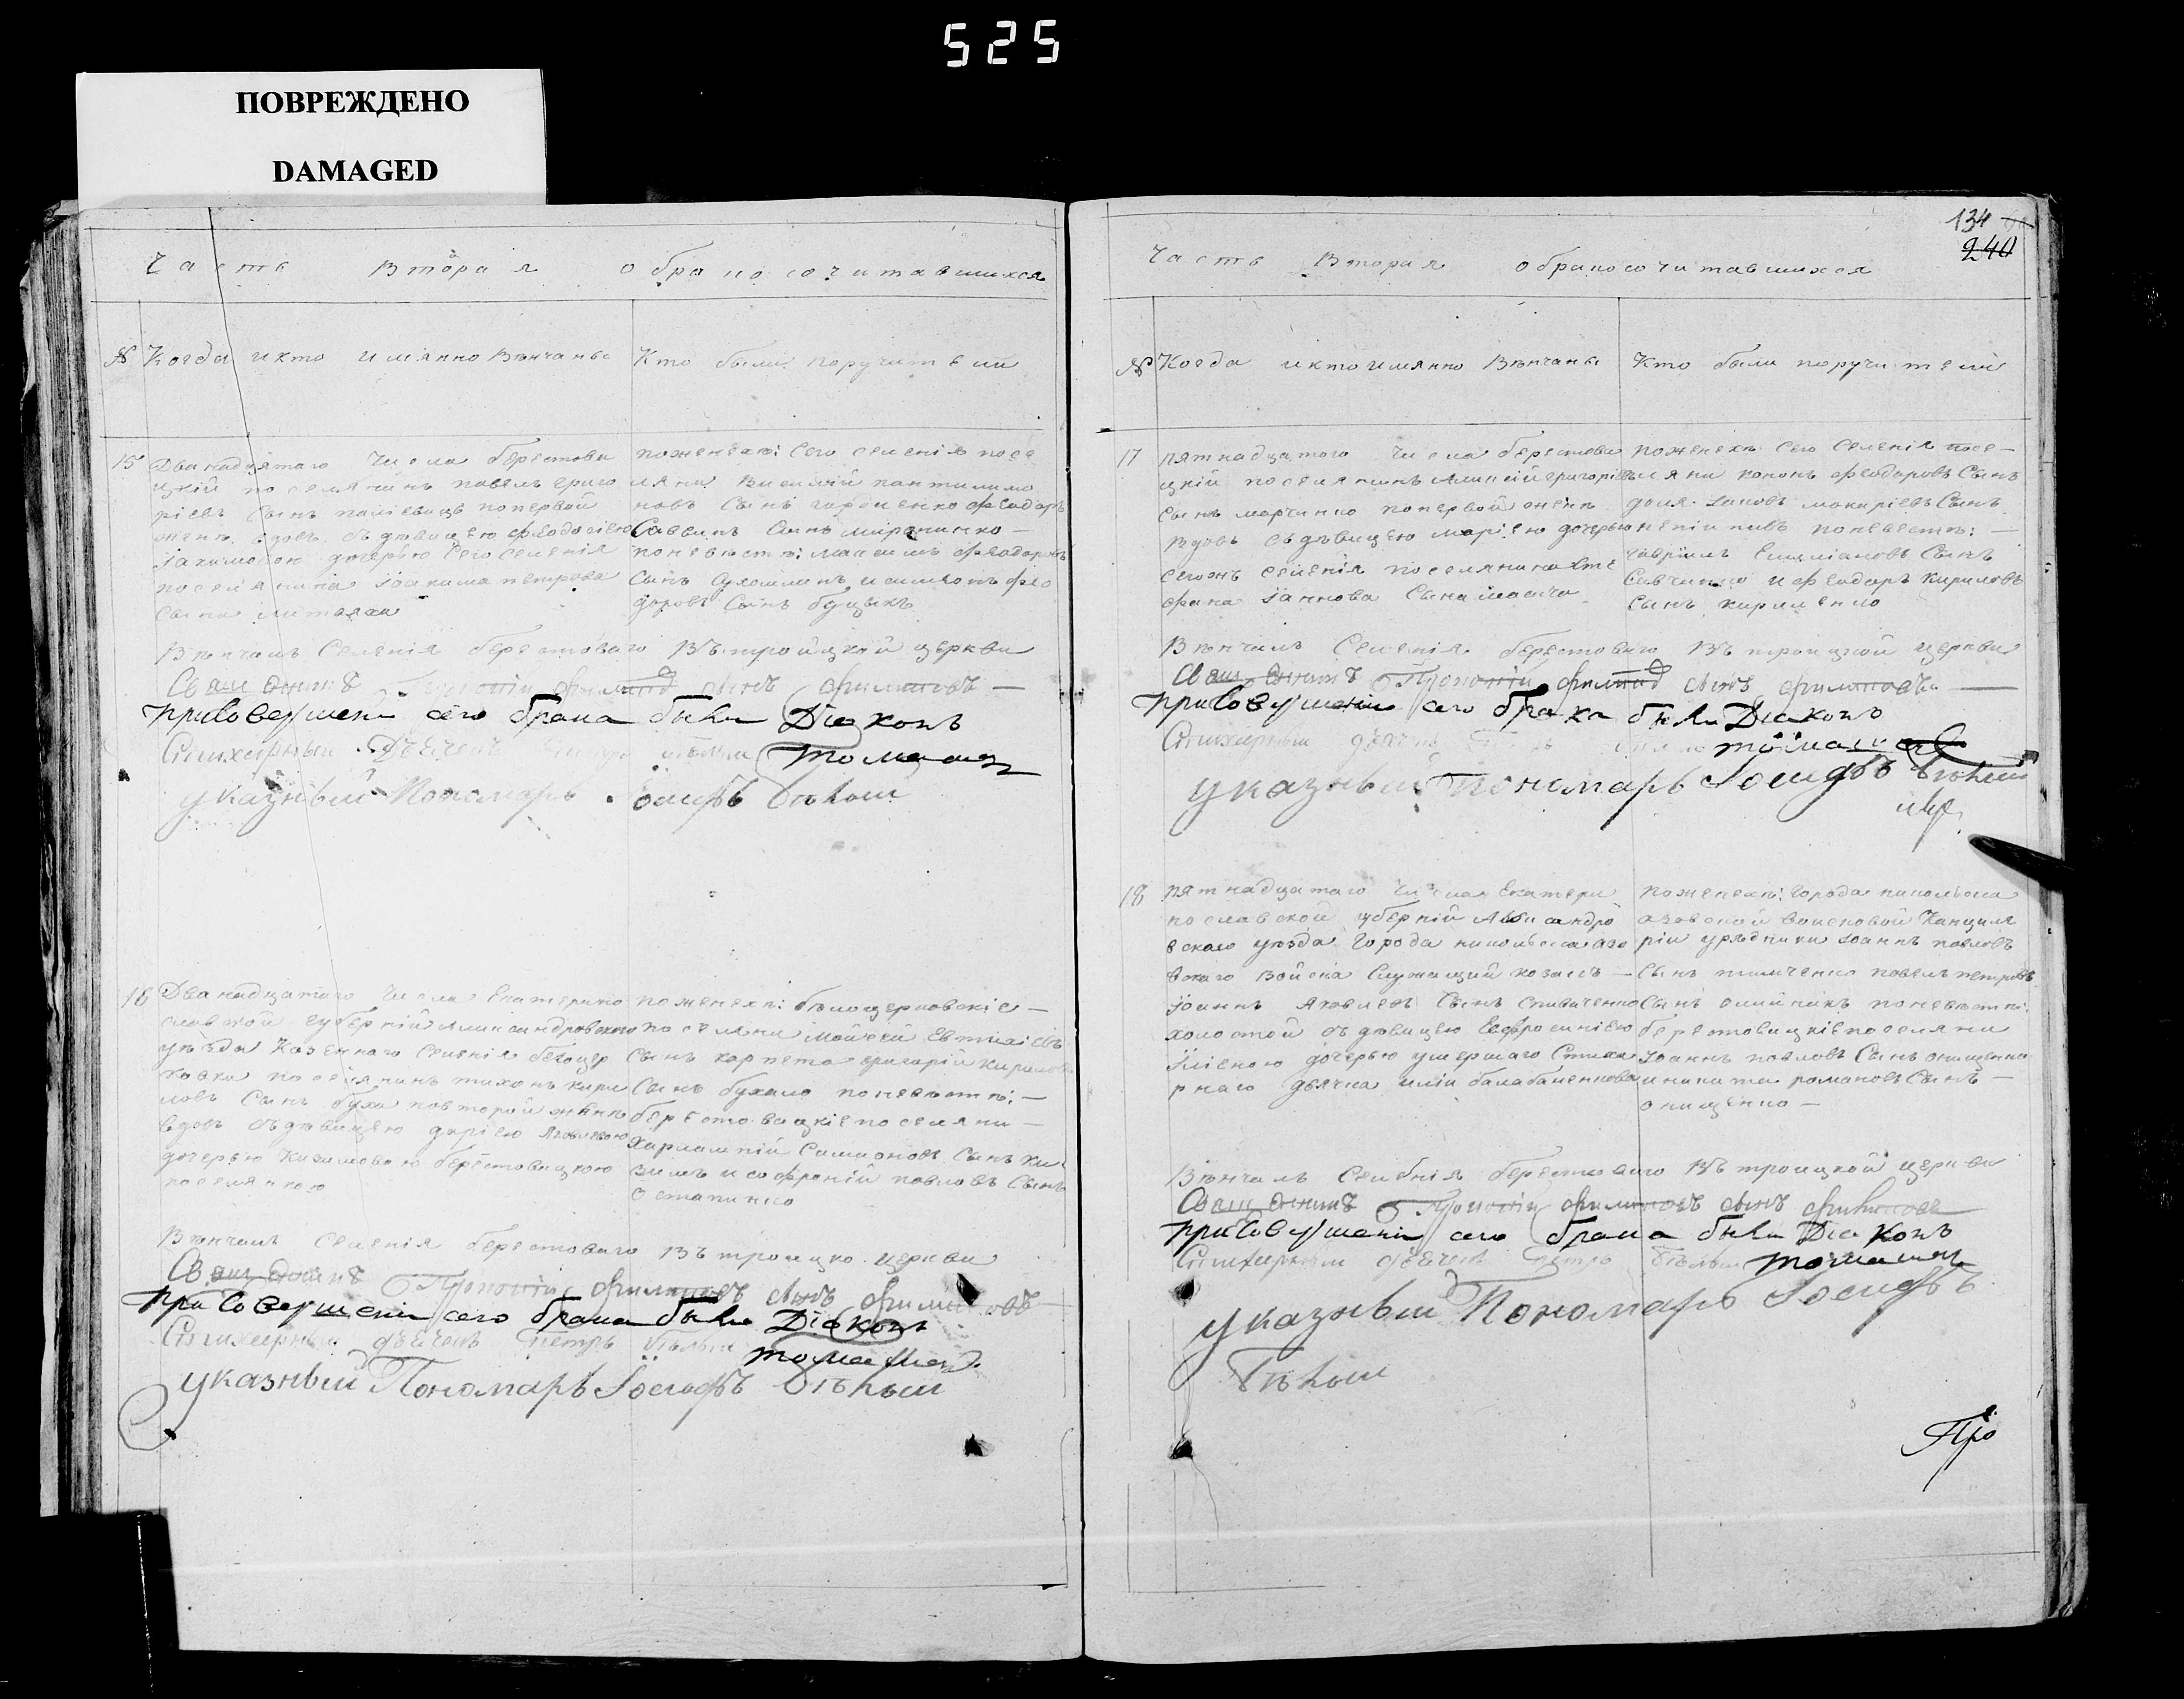 525
ПОВРЕЖДЕНО
DAMAGED
Часть вторая о бракосочитавшихся
№ Когда икто имянно Вѣнчаны
Кто были поручители
15 Дванадцятаго числа берестова
цкій поселянинъ павелъ григо
ріевъ сынъ попервой
женѣ вдовъ съ дѣвицею феодосіею
іакимовою дочерью сего селенія
поселянина іоакима петрова
сына литвяка
поженехѣ: Сего селенія посе
ляни Василій пантилимо
новъ Сынъ гордіенко феодоръ
Саввинъ Сынъ мироненко —
поневѣстѣ: максимъ феодоровъ
Сынъ фео
доровъ Сынъ буцыкъ
Вѣнчалъ Селенія берестоваго въ троицкой церкви
Священникъ Прокопій сынъ филиповъ —
присовершеніи сего брака были Діаконъ
Стихарный Дьячекъ Петръ бѣлый
указный Пономарь Іосифъ Бѣлый
16 Дванадцатаго числа Екатерино
славской губерніи Александровскаго
уѣзда Казеннаго Селенія бѣлоцер
ковки поселянинъ тихонъ кири
ловъ Сынъ буха повторой женѣ
вдовъ съ дѣвицею даріею яковлевою
дочерью Кизимовою берестовацкою
поселянкою
поженехѣ: бѣлоцерковскіе —
поселяни Мойсей Евтихіевъ
Сынъ карпета григорій кириловъ
Сынъ бухало поневѣстѣ: —
берестовацкіе поселяни —
Харлампій Симионовъ Сынъ ки
зимъ и софроній павловъ Сынъ
остапенко
Вѣнчалъ Селенія берестоваго въ троицкой церкви
Священникъ Прокопій филиповъ сынъ филиповъ
присовершеніи сего брака были Діаконъ
Стихарный дьячекъ Петръ бѣлый
указный Пономарь Іосифъ Бѣлый
134
240
Часть Вторая о бракосочитавшихся
№ Когда икто имянно Вѣнчаны
Кто были поручители
17 пятнадцатого числа берестова
цкій поселянинъ Алексій григоріевъ
Сынъ марченко попервой женѣ
вдовъ съ дѣвицею маріею дочерью
сегожъ селенія поселянина сте
фана іаннова Сына
поженехѣ сего селенія посе—
ляни кононъ феодоровъ Сынъ
доля іаковъ макаріевъ Сынъ
поневѣстѣ: —
гавріилъ Емиліановъ Сынъ
Савченко и феодоръ кириловъ
Сынъ кириленко
Вѣнчалъ Селенія берестоваго въ троицкой церкви
Священникъ Прокопій сынъ филиповъ —
присовершеніи сего брака были Діаконъ
Стихарный дьячекъ
указный Пономарь Іосифъ Бѣлый
18 пятнадцатаго числа Екатери
нославской губерніи Александро
вскаго уѣзда Города никольска азо
вскаго войска Служащий козакъ —
Іоаннъ Яковлевъ Сынъ Спиваченко
холостой съ дѣвицею Евфросиніею
Іліеною дочерью умершаго Стиха
рнаго дьячка иліи балабаненкова
поженехѣ: Города никольска
азовской войсковой Канциля
ріи урядники іоаннъ павловъ
Сынъ тимченко павелъ петровъ
Сынъ олийникъ поневѣстѣ:
берестовицкіе поселяни
іоаннъ павловъ Сынъ онищенко
и никита романовъ Сынъ —
онищенко —
Вѣнчалъ Селенія берестоваго въ троицкой церкви
Священникъ Прокопій филиповъ сынъ филиповъ
присовершеніи сего брака были Діаконъ
Стихарный дьячекъ Петръ Бѣлый
указный Пономарь Іосифъ
Бѣлый